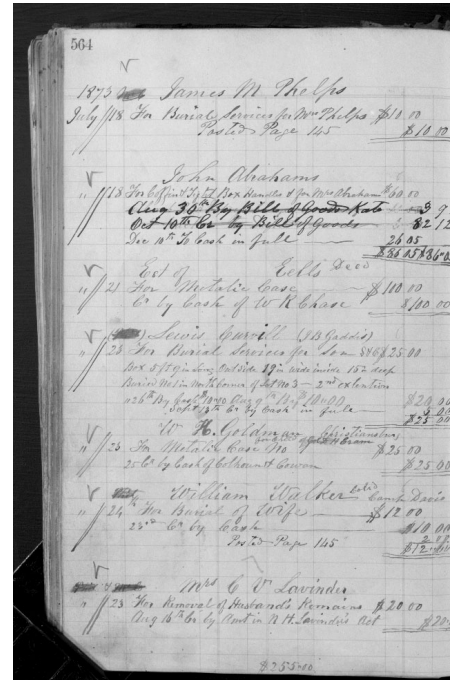 564
1873 James M Phelps
July 18 For Burial Services for Mrs Phelps $10.00
Posted Page 145 $10.00
John Abrahams
" 18 For Coffin & Box Handles & for Mrs Abraham 30.00
Aug 30th By Bill of Goods
Oct 10th Cr by Bill of Goods 12
Dec 10th To Cash in full 26 05
$36 05
Est of Eells Decd
" 21 For Metalic Case $100.00
Cr by Cash of W R Chase $100.00
Lewis (J B Gaddis)
" 23 For Burial Services for Son $25.00
Box 5 ft 9 in long Outside 19 in wide inside 15½ deep
Buried No 1 in North of Lot No 3 — 2nd extention
Cr by Cash in full 5 00
$25 00
W H. Goldman Christiansburg
" 23 For Metalic Case No $25 00
25 Cr by Cash of Calhoun & Cowan $25 00
William Walker cold Camp Davis
" 24th For Burial of Wife $12.00
23rd Cr by Cash $10 00
Posted Page 145 2 00
$12.00
Mrs C V Lavinder
" 23 For Removal of Husband's Remains $20.00
Aug 15th Cr by Amt in R H. Lavinder's Act $20
$255.00